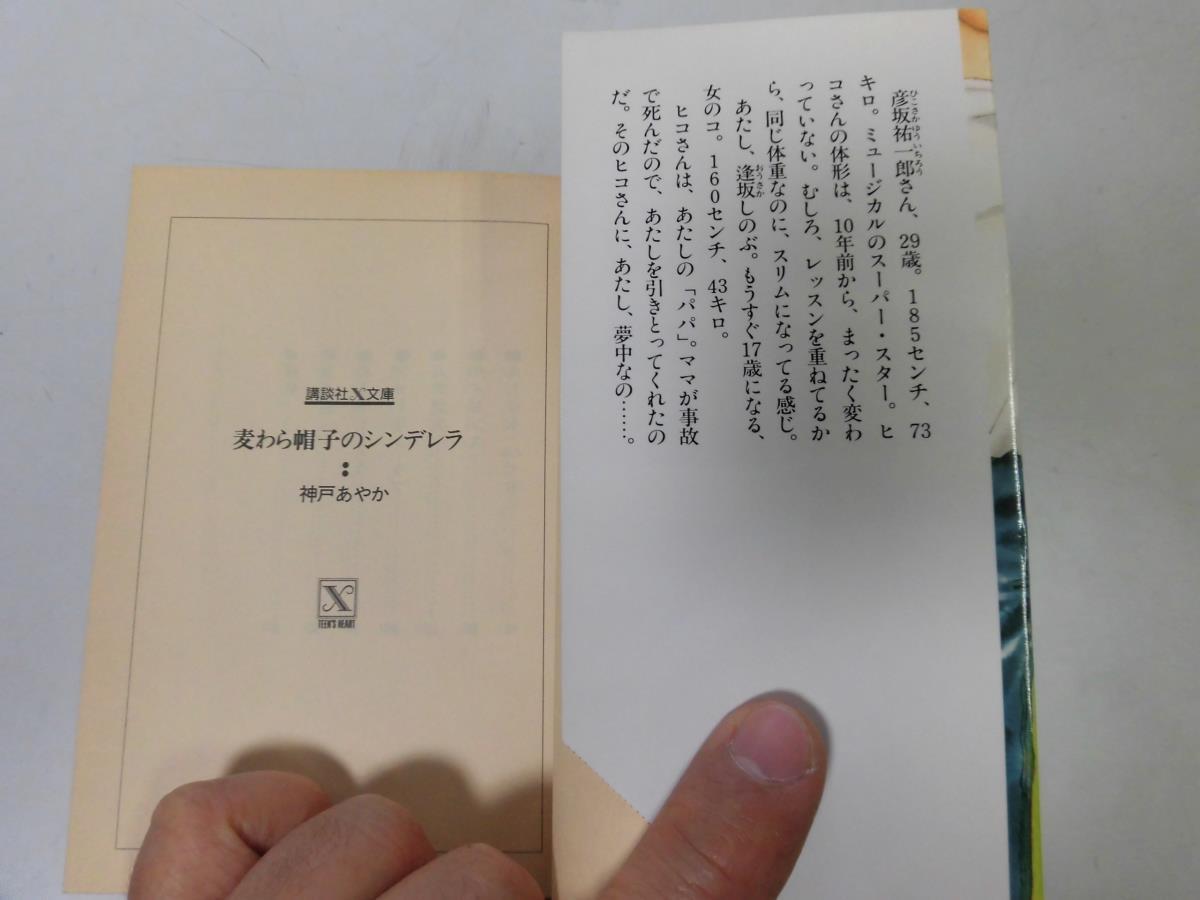 彦坂祐一郎さん、29歳。185センチ、73
ひこさかゆういちろう
キロ。ミュージカルのスーパー・スター。ヒ
コさんの体形は、10年前から、まったく変わ
っていない。むしろ、レッスンを重ねてるか
ら、同じ体重なのに、スリムになってる感じ。
あたし、逢坂しのぶ。もうすぐ17歳になる、
おうさか
女のコ。160センチ、43キロ。
ヒコさんは、あたしの「パパ」。ママが事故
で死んだので、あたしを引きとってくれたの
だ。そのヒコさんに、あたし、夢中なの……。
講談社X文庫
麦わら帽子のシンデレラ
神戸あやか
X
TEEN'S HEART